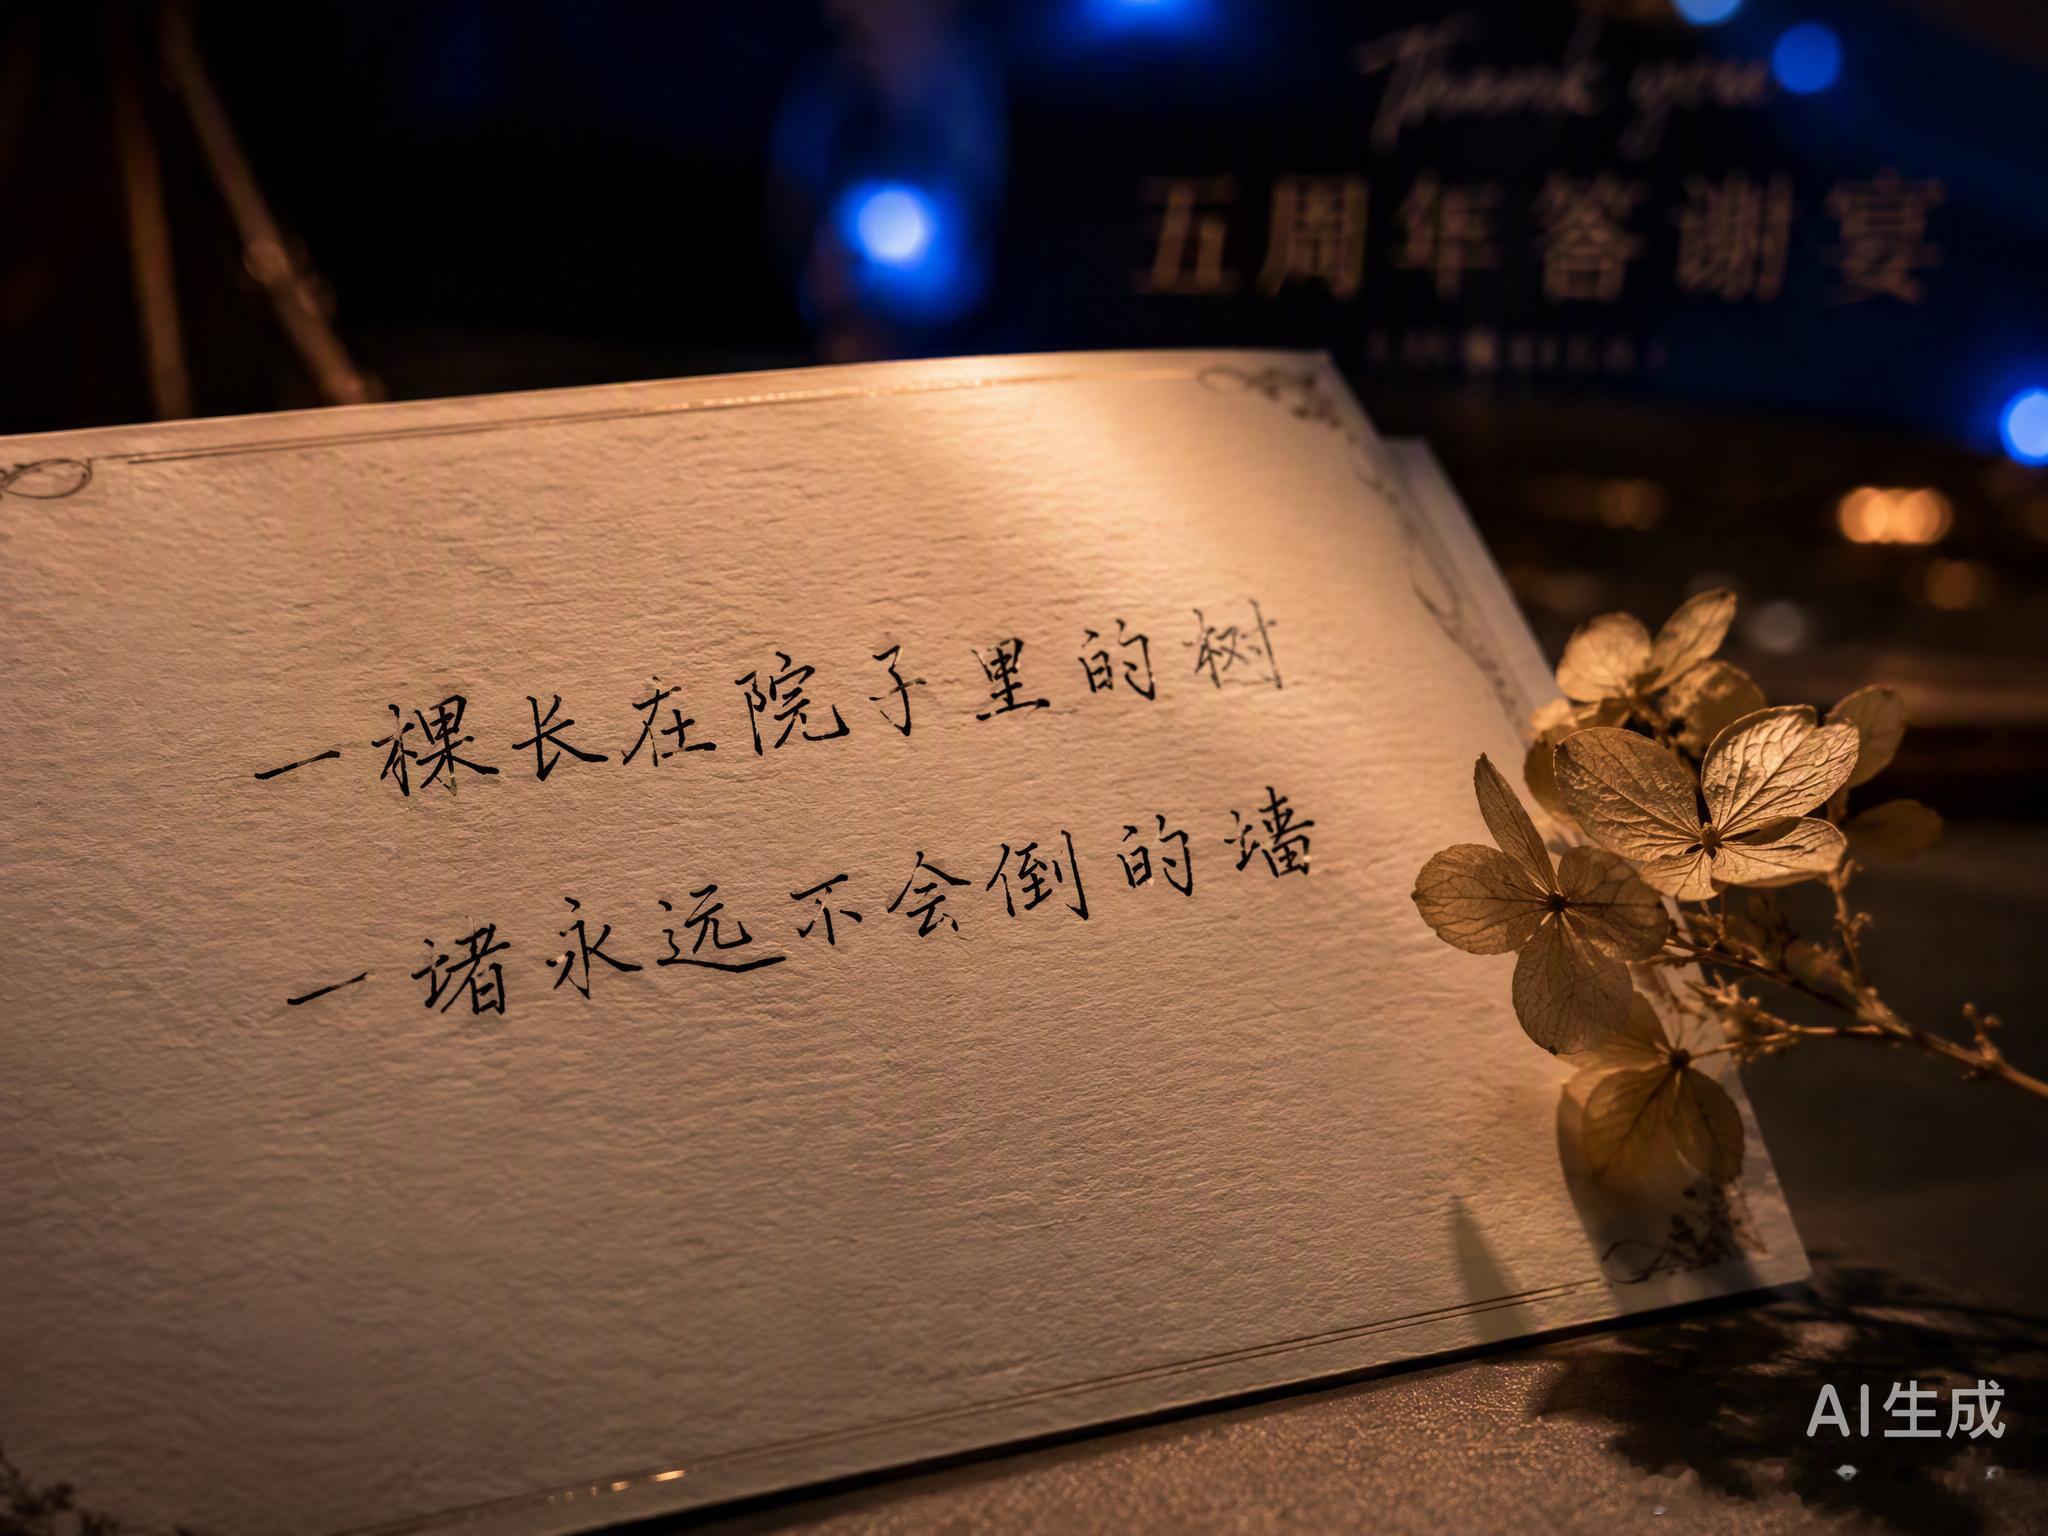 Thank you
五周年答谢宴
一棵长在院子里的树
一堵永远不会倒的墙
AI生成